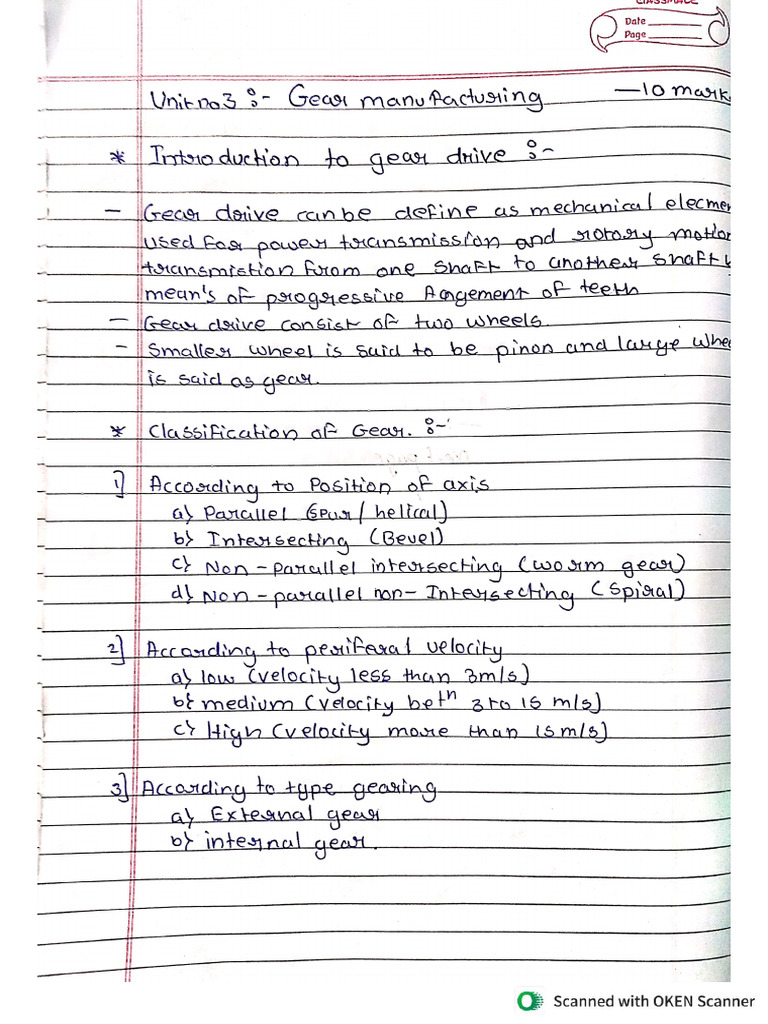 CLASSMATE
Date
Page
Unit no 3 :- Gear manufacturing — 10 mark
* Introduction to gear drive :-
- Gear drive can be define as mechanical elecmen
used for power transmission and rotary motion
transmistion from one shaft to another shaft
mean's of progressive Aangement of teeth
- Gear drive consist of two wheels.
- Smaller wheel is said to be pinon and large whee
is said as gear.
* Classification of Gear. :-
1] According to Position of axis
a) Parallel (spur/helical)
b) Intersecting (Bevel)
c) Non-parallel intersecting (worm gear)
d) Non-parallel non-Intersecting (Spiral)
2] According to periferal velocity
a) low (velocity less than 3m/s)
b) medium (velocity beth 3 to 15 m/s)
c) High (velocity more than 15m/s)
3] According to type gearing
a) External gear
b) internal gear.
Scanned with OKEN Scanner